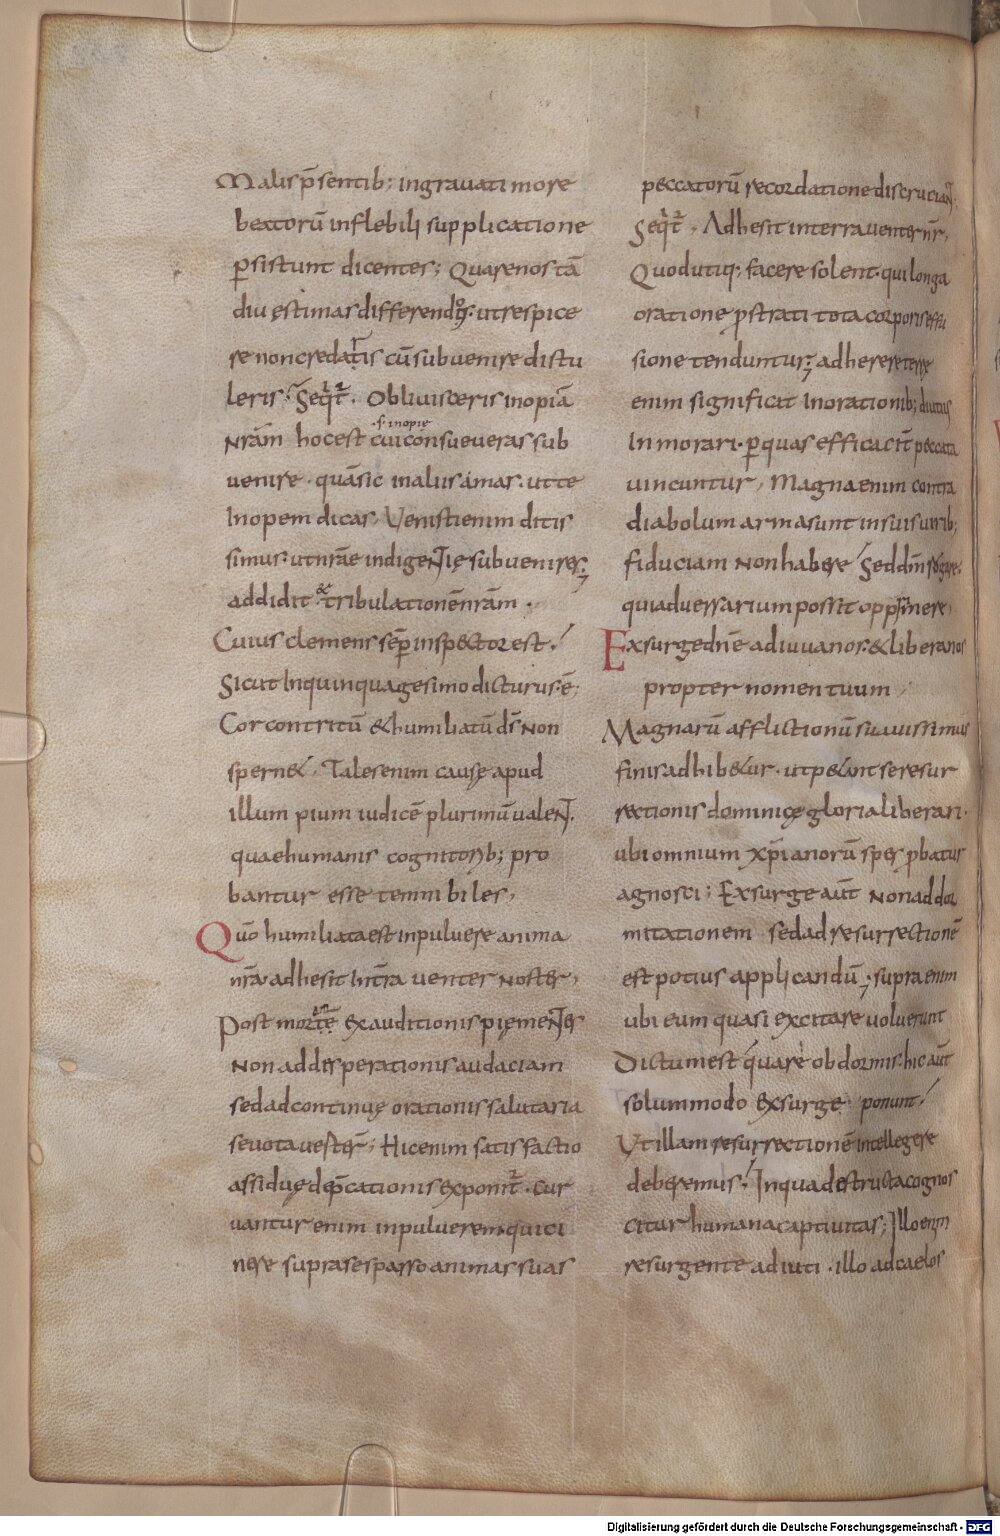 Malis p̄sentib; ingrauati more
beatorū inflebili supplicatione
ꝑsistunt dicentes; Quare nos tā
diu ęstimas differendos. ut respice
re non credatis cū subuenire distu
leris; Seqt̄. Obliuisceris inopiā
nr̄am hoc est cui consueueras sub
.s. inopię
uenire. quā sic in aliis amas. ut te
Inopem dicas. Venisti enim ditis
simus. ut nr̄ae indigentię subuenires;
addidit & tribulationē nr̄am.
Cuius clemens sēꝑ inspector est.
Sicut In quinquagesimo dicturus ē;
Cor contritū & humiliatū ds̄ non
spern&. Tales enim causę apud
illum pium iudicē plurimū ualent.
quae humanis cognitorib; pro
bantur esse temnibiles,
Qūo humiliata est in puluere anima
nr̄a. adhesit In tr̄a uenter noster,
Post mortē exauditionis pięmentes
Non ad desperationis audaciam
sed ad continuę orationis salutaria
se uota uestēr; Hic enim satisfactio
assiduę dep̄cationis exponit̄. Cur
uantur enim in puluerem qui ci
nere supra se sparso animas suas
peccatorū recordatione discruciant.
Seqt̄. Adhesit in terra uenter nr̄,
Quod utiq; facere solent. qui longa
oratione ꝓstrati tota corporis effu
sione tenduntur; adherere terrę
enim significat In orationib; diutius
Inmorari. ꝑ quas efficacit̄ peccata
uincuntur, Magna enim contra
diabolum arma sunt in suis uirib;
fiduciam non habere Sed dm̄ rogare.
qui aduersarium possit opprimere,
Exsurge dn̄e adiuua nos. & libera nos
propter nomen tuum
Magnarū afflictionū suauissimus
finis adhib&ur. ut p&ant se resur
rectionis dominicę gloria liberari.
ubi omnium xp̄ianorū spes ꝓbatur
agnosci; Exsurge aūt non ad dor
mitationem sed ad resurrectionē
est potius applicandū; supra enim
ubi eum quasi excitare uoluerunt
Dictum est quare obdormis. hic aūt
solummodo exsurge ponunt.
Ut illam resurrectionē intellegere
deberemus. In qua destructa cognos
citur humana captiuitas; Illo enim
resurgente adiuti. illo ad caelos
Digitalisierung gefördert durch die Deutsche Forschungsgemeinschaft - DFG